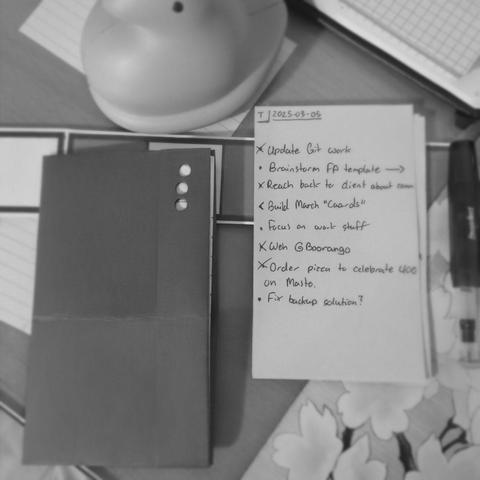 T 2025-03-05
× Update Git work
• Brainstorm FA template →
× Reach back to client about comm
< Build March "Coards"
• Focus on work stuff
× Weh @Boorango
× Order pizza to celebrate 400
on Masto.
• Fix backup solution?